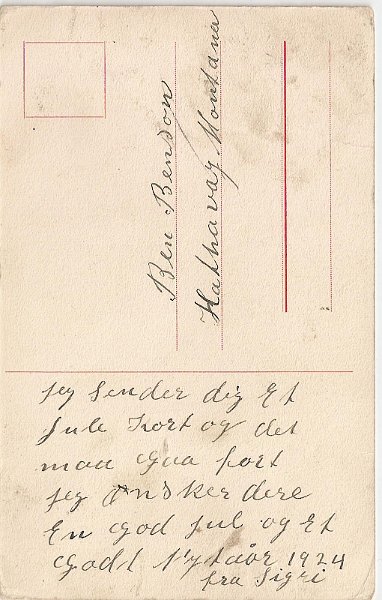 Ben Benson
Hathaway. Montana
jeg Sender dig Et
Jule Kort og det
maa Gaa fort
jeg Ønsker dere
En god jul og Et
Godt Nytaår 1924
fra Sigri